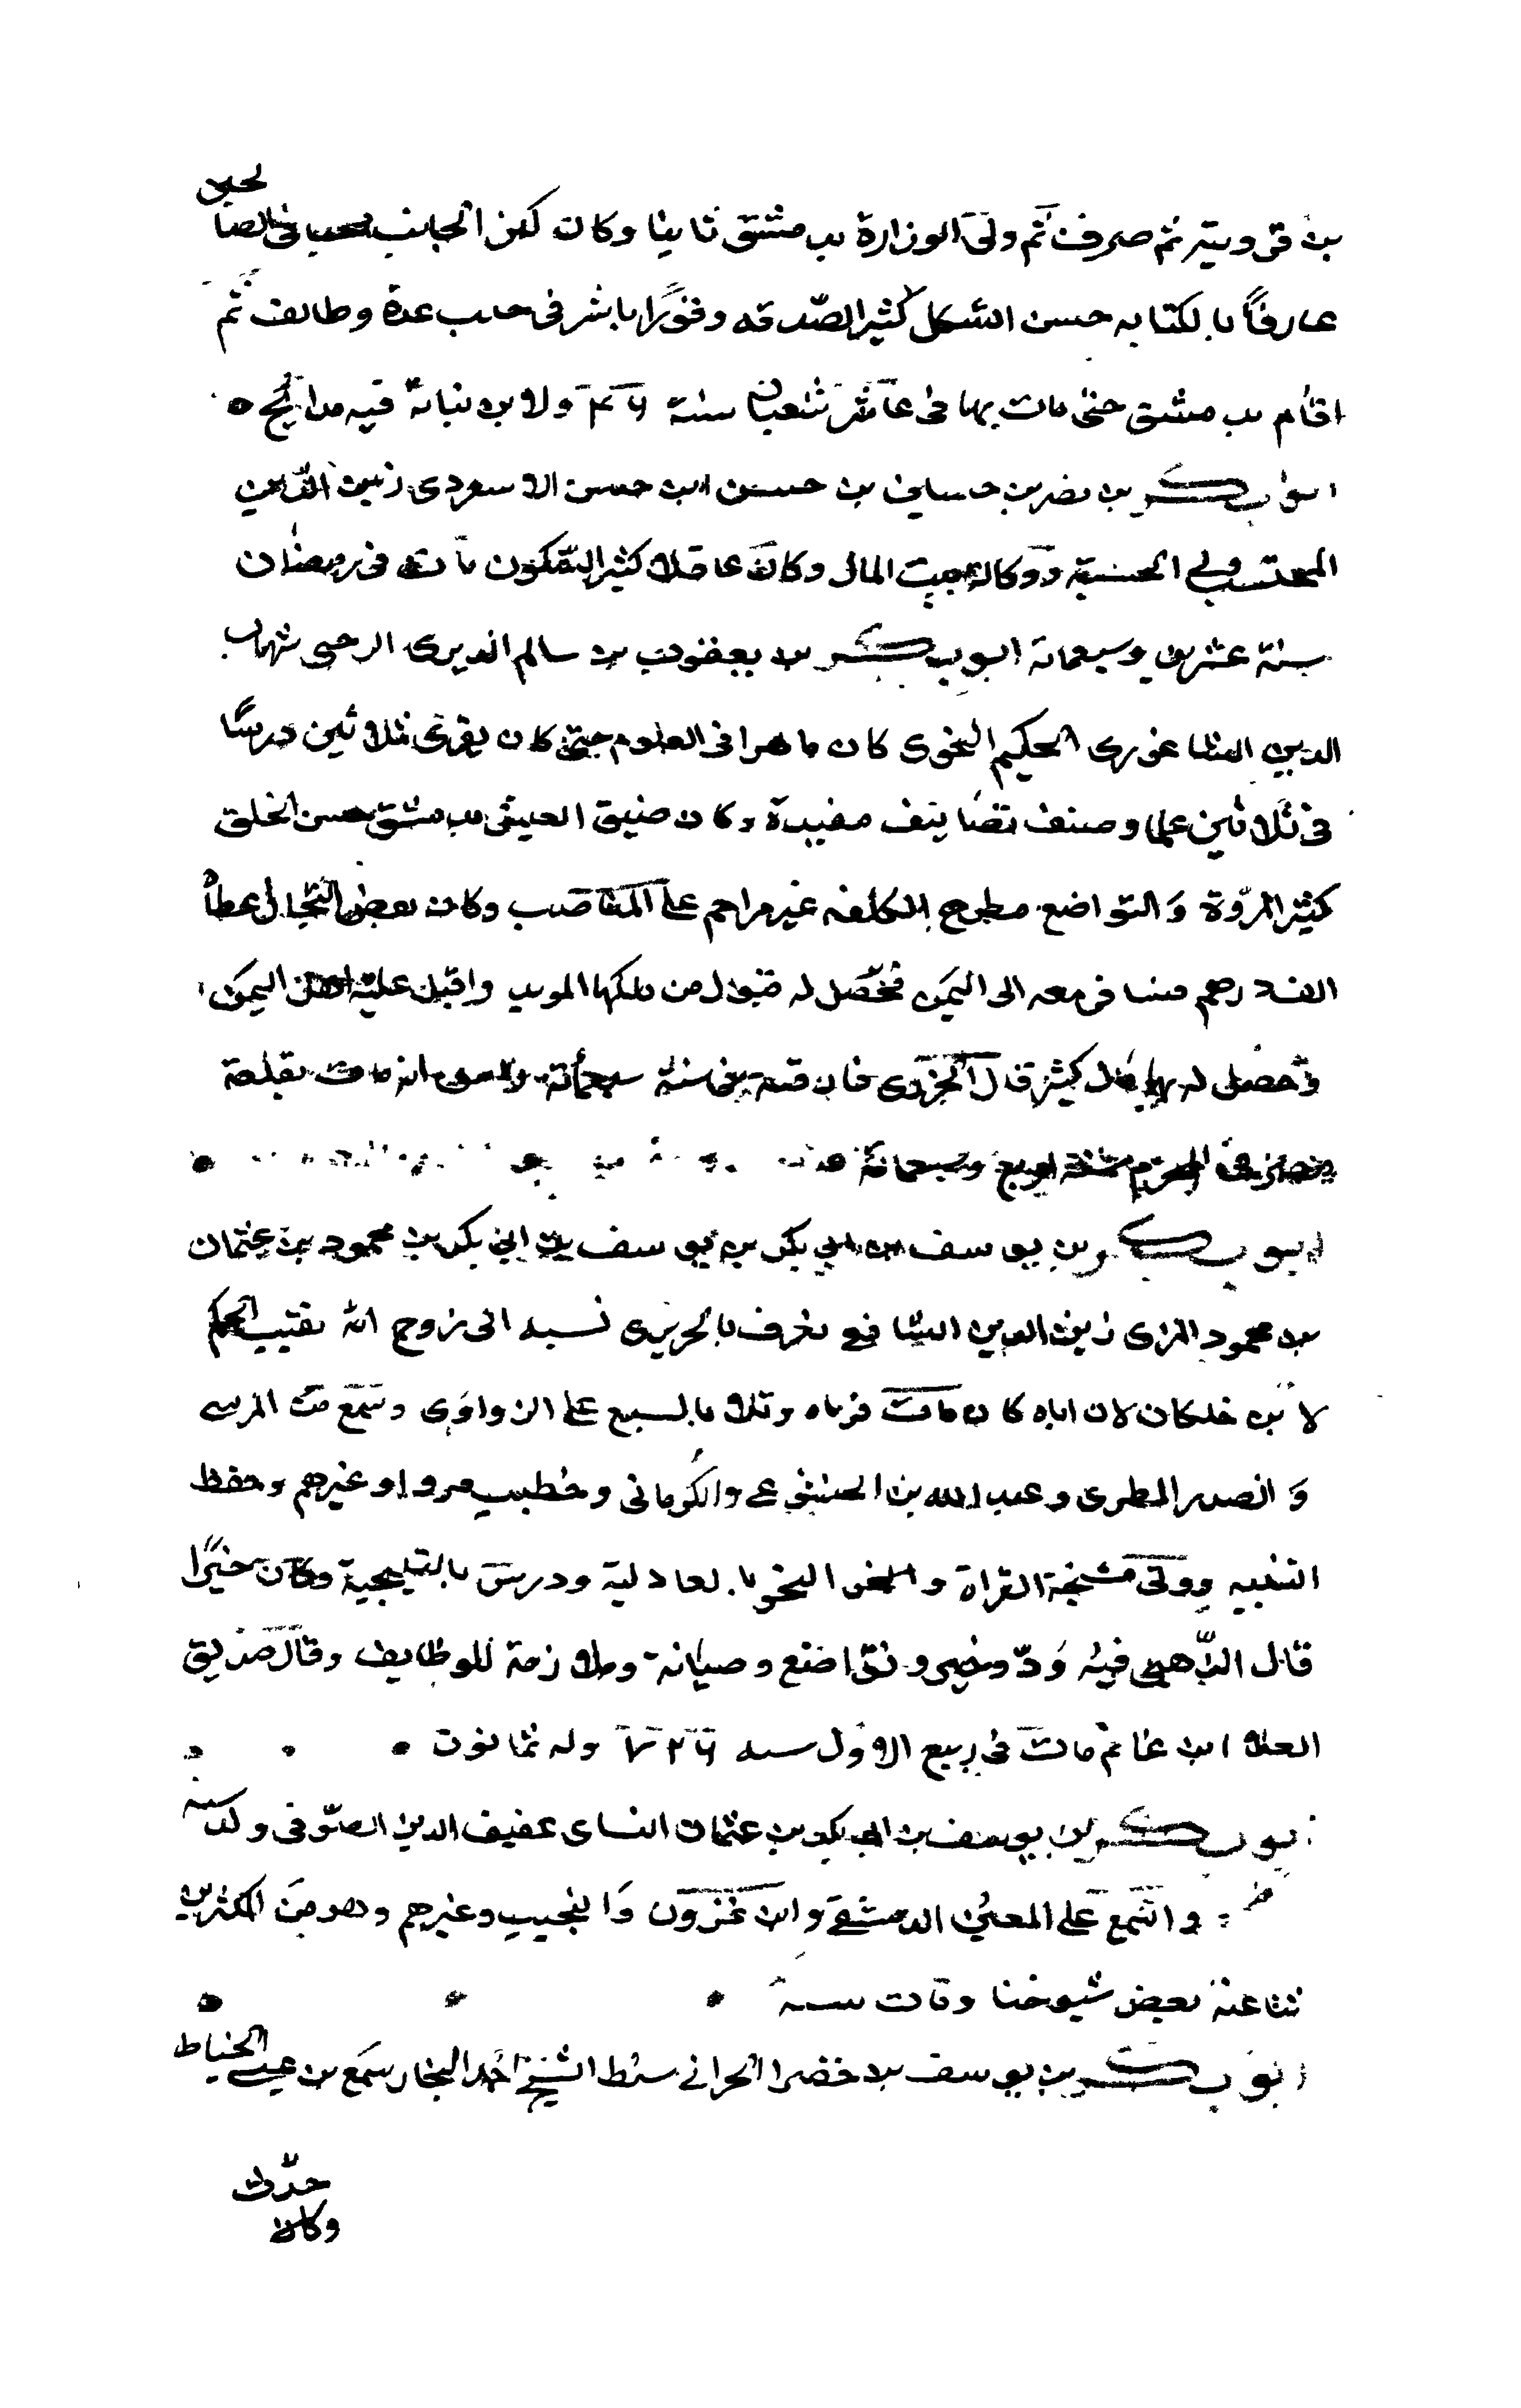 لحين
بن قروينة ثم صرف ثم ولى الوزارة بدمشق ثانيا وكان لين الجانب
عارفاً بالكتابه حسن الشكل كثير الصّدقه وفوراً باشر فى حلب عدة وطايف ثم
اقام بدمشق حتى مات بها فى عاشر شعبان سنة ٧٤٦ ولابن نباتة فيه مدايح
ابو بكر بن نصر بن حسين بن حسن ابن حسن الاسعردى زين الدين
المحتسب ولى الحسبة ووكالة بيت المال وكان عاقلا كثير السكون مات فى رمضان
سنة عشرين وسبعماية ابو بكر بن يعقوب بن سالم الديرى الرحبى شهاب
الدين الشاغورى الحكيم النحوى كان ماهرا فى العلوم حتى كان يقرى ثلاثين درسًا
فى ثلاثين علما وصنف تصانيف مفيدة وكان ضيق العيش بدمشق حسن الخلق
كثير المروّة والتواضع مطرح الكلفه غير مزاحم على المناصب وكان بعض التجار اعطاه
الف درهم فسافر معه الى اليمن فحصّل له قبول من ملكها المويد واقبل عليه اهل اليمن
وحصل له بها مال كثير قال الجزرى فارقته فى سنة سبعمائة انه مات بقلعة
فى المحرم سنة اربع وسبعمائة
ابو بكر بن يوسف بن ابى بكر بن يوسف بن ابى بكر بن محمود بن عثمان
بن محمود المزى زين الدين الشافعى يعرف بالحريرى نسبه الى زوج امه نقيب الحكم
لابن خلكان لان اباه كان مات فرباه وتلا بالسبع على الزواوى وسمع من المرسى
والصدر البكرى وعبد الله بن الخشوعى والكرمانى وخطيب مردا وغيرهم وحفظ
التنبيه وولى مشيخة القراة والنحو بالعادلية ودرس بالقليجية وكان خيرًا
قال الذّهبى فيه ودّ وخير وتواضع وصيانة وملازمة للوظايف وقال صديق
العلا ابن غانم مات فى ربيع الاول سنه ٧٢٦ وله ثمانون
ابو بكر بن يوسف بن ابى بكر بن عثمان النساى عفيف الدين الصّوفى ولد سنه
واسمع على المعين الدمشقى وابن عزون والنجيب وغيرهم وهو من المكثرين
ثنا عنه بعض شيوخنا ومات سنة
ابو بكر بن يوسف بن خضر الحرانى سبط الشيخ احمد النجار سمع من عيسى الخياط
حدّث
وكان